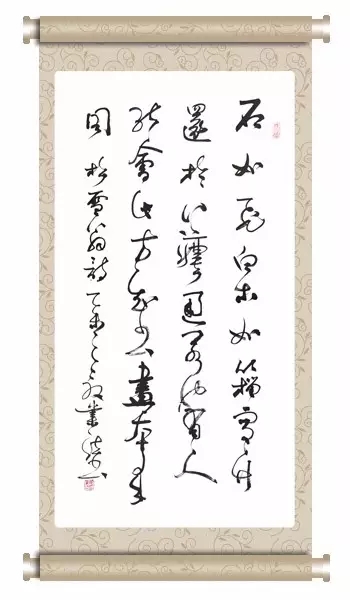 石如飛白木如籀寫竹
還於八法通若也有人
能會此方知書畫本來
同 松雪翁詩